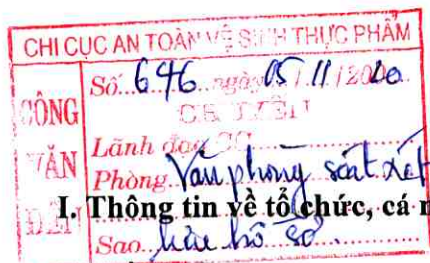 CHI CỤC AN TOÀN VỆ SINH THỰC PHẨM
CÔNG VĂN ĐẾN
Số 646 ngày 05/11/2020
Lãnh đạo CC
Phòng Văn phòng soát xét
I. Thông tin về tổ chức, cá n
Sao lưu hồ sơ